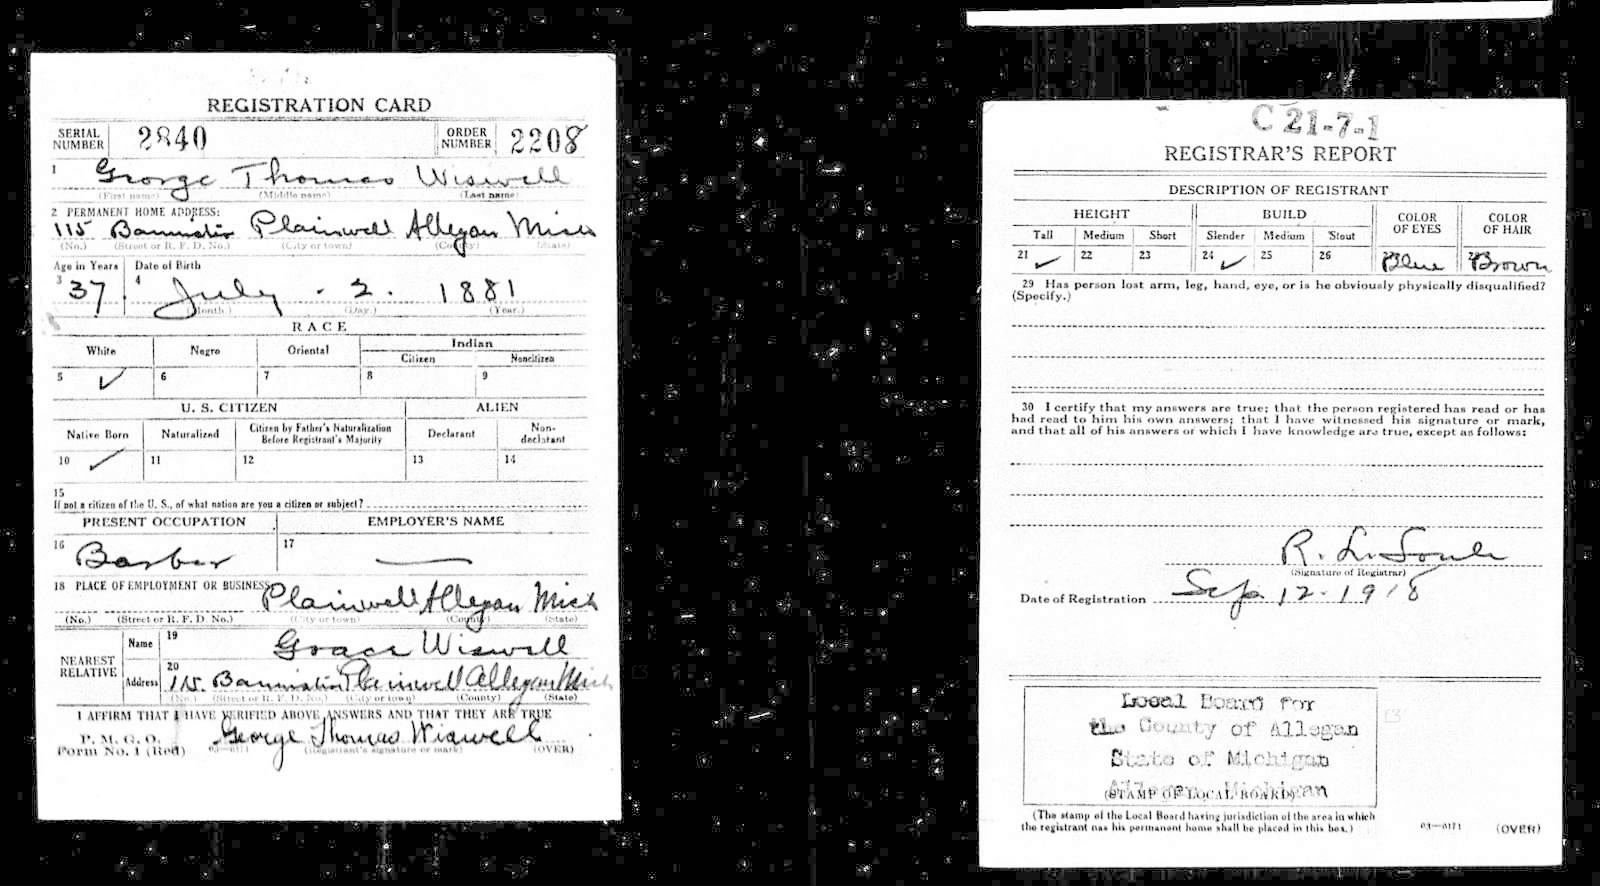 REGISTRATION CARD
SERIAL NUMBER 2840 ORDER NUMBER 2208
1 George Thomas Wiswell
(First name) (Middle name) (Last name)
2 PERMANENT HOME ADDRESS:
115 Bannister Plainwell Allegan Mich
(No.) (Street or R. F. D. No.) (City or town) (County) (State)
Age in Years Date of Birth
3 37 4 July . 2. 1881
(Month.) (Day.) (Year.)
RACE
White Negro Oriental Indian
Citizen Noncitizen
5 ✓ 6 7 8 9
U. S. CITIZEN ALIEN
Native Born Naturalized Citizen by Father's Naturalization Before Registrant's Majority Declarant Non-declarant
10 ✓ 11 12 13 14
15
If not a citizen of the U. S., of what nation are you a citizen or subject?
PRESENT OCCUPATION EMPLOYER'S NAME
16 Barber 17 —
18 PLACE OF EMPLOYMENT OR BUSINESS:
Plainwell Allegan Mich
(No.) (Street or R. F. D. No.) (City or town) (County) (State)
NEAREST RELATIVE
Name 19 Grace Wiswell
Address 20 115 Bannister Plainwell Allegan Mich
(No.) (Street or R. F. D. No.) (City or town) (County) (State)
I AFFIRM THAT I HAVE VERIFIED ABOVE ANSWERS AND THAT THEY ARE TRUE
P. M. G. O.
Form No. 1 (Red) 03—6171 George Thomas Wiswell
(Registrant's signature or mark) (OVER)
C 21-7-1
REGISTRAR'S REPORT
DESCRIPTION OF REGISTRANT
HEIGHT BUILD COLOR OF EYES COLOR OF HAIR
Tall Medium Short Slender Medium Stout
21 ✓ 22 23 24 ✓ 25 26 Blue Brown
29 Has person lost arm, leg, hand, eye, or is he obviously physically disqualified?
(Specify.)
30 I certify that my answers are true; that the person registered has read or has
had read to him his own answers; that I have witnessed his signature or mark,
and that all of his answers of which I have knowledge are true, except as follows:
R. L. Soule
(Signature of Registrar)
Date of Registration Sep. 12. 1918
Local Board for
the County of Allegan
State of Michigan
Allegan, Michigan
(STAMP OF LOCAL BOARD)
(The stamp of the Local Board having jurisdiction of the area in which
the registrant has his permanent home shall be placed in this box.)
03—6171 (OVER)